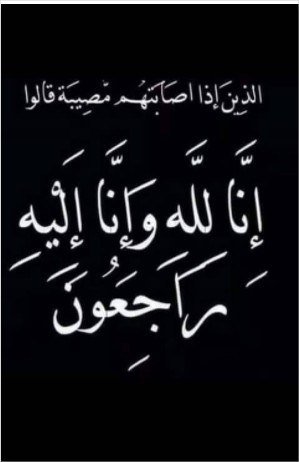 الذِينَ إذا اصَابَتهُم مّصِيبَة قالوا
إِنَّا لِلَّه وَإِنَّا إِلَيْهِ
رَاجِعُونَ